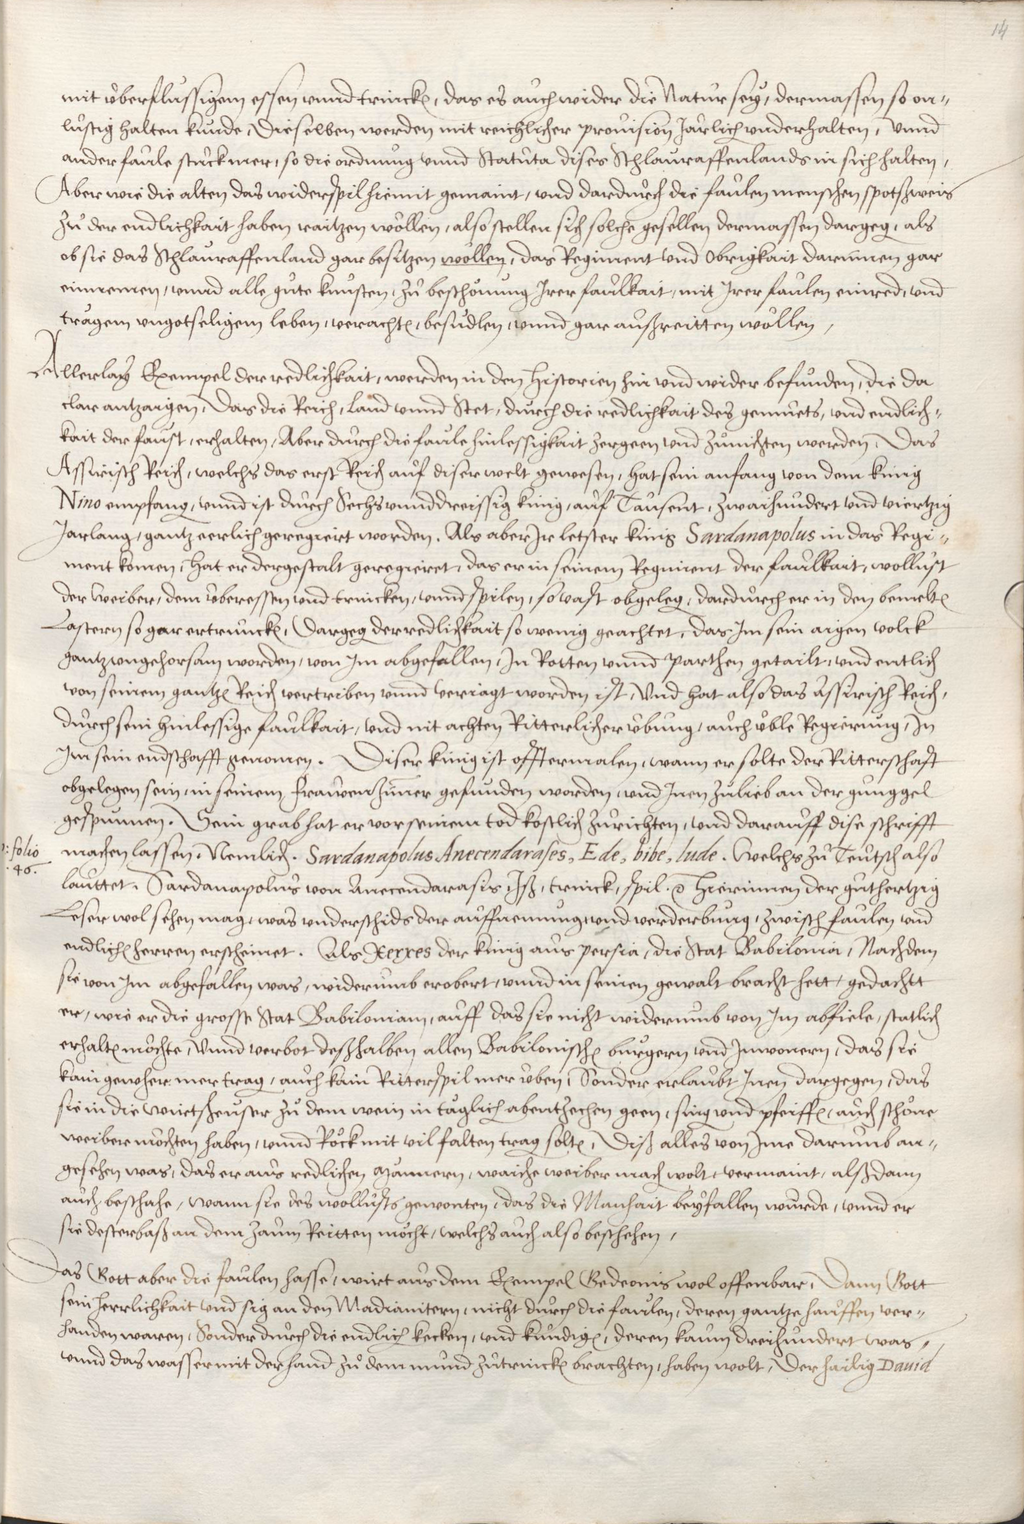 14
mit überflüssigem essen vnnd trincken, das es auch wider die Natur sey, dermassen so on-
lustig halten kunde, Dieselben werden mit reichlicher prouision Järlich vnderhalten, Vnnd
ander faule stuck mer, so die ordnung vnnd Statuta dises Schlauraffenlands in sich halten,
Aber wie die alten das widerspil hiemit gemaint, vnd dardurch die faulen menschen spotszweis
zu der endlichkait haben raitzen wöllen, also stellen sich solche gesellen dermassen dargeg, als
ob sie das Schlauraffenland gar besitzen wöllen, das Regiment vnd Obrigkait darinnen gar
einnemen, vnnd alle gute kunsten, zu beschönung Irer faulkait, mit Irer faulen einred, vnd
trägem vngotseligem leben, verachten, besudlen, vnnd gar außreitten wöllen,
Allerlay Exempel der redlichkait, werden in den Historien hin vnd wider befunden, die da
clar antzaigen, Das die Reich, Land vnnd Stet, durch die redlichkait des gemuets, vnd endlich-
kait der faust, erhalten, Aber durch die faule hinlessigkait zergeen vnd zunichten werden. Das
Assirisch Reich, welchs das erst Reich auf diser welt gewesen, hat sein anfang von dem king
Nino empfang, vnnd ist durch Sechsvnnddreissig king, auf Tausent, zwaihundert vnd viertzig
Jar lang, gantz eerlich geregiert worden. Als aber Ir letster king Sardanapolus in das Regi-
ment komen, hat er dergestalt geregieret, das er in seinem Regiment der faulkait, wollust
der weiber, dem überessen vnd trincken, vnnd spilen, so vast obgeleg, dardurch er in den bemelten
Lastern so gar ertruncken, Dargeg der redlichkait so wenig geachtet, das Im sein aigen volck
gantz vngehorsam worden, von Im abgefallen, In Rotten vnnd Parthen getailt, vnd entlich
von seinem gantzen Reich vertriben vnnd veriagt worden ist, Vnd hat also das Assirisch Reich,
durch sein hinlessige faulkait, vnd nit achten Ritterlicher übung, auch üble Regierung, In
Im sein endschafft genomen. Diser king ist offtermalen, wann er solte der Ritterschafft
obgelegen sein, in seinem Frawenzimer gefunden worden, vnd Inen zulieb an der gunggel
gespunnen. Sein grab hat er vor seinem tod kostlich zurichten, vnd darauff dise schrifft
folio
40.
machen lassen. Nemlich. Sardanapolus Anecendarases, Ede, bibe, lude. Welchs zu Teutsch also
lauttet. Sardanapolus von Anecendarasis, Iß, trinck, spil. Hierinnen der guthertzig
Leser wol sehen mag, was vnderschids der auffnemung vnd verderbung, zwisch faulen vnd
endlichen herren erscheinet. Als Xerxes der king aus Persia, die Stat Babilonia, Nachdem
sie von Im abgefallen was, widerumb erobert, vnnd in seinen gewalt bracht hett, gedachtt
er, wie er die grosse Stat Babiloniam, auff das sie nicht widerumb von Im abfiele, statlich
erhalten möchte, Vnnd verbot deßhalben allen Babilonischen burgern vnd Inwonern, das sie
kain gewher mer trag, auch kain Ritterspil mer üben, Sonder erlaubt Inen dargegen, das
sie in die wirtsheuser zu dem wein in täglich abentzechen geen, sing vnd pfeiffen, auch schöne
weiber möchten haben, vnnd Röck mit vil falten trag solten, Diß alles von Ime darumb an-
gesehen was, das er aus redlichen mannern, waiche weiber mach wolt, vermaint, alßdann
auch beschahe, wann sie des wollusts gewonten, das die Manhait beyfallen wurde, vnnd er
sie desterbaß an dem zaum Reitten möcht, welchs auch also beschehen,
Das Gott aber die faulen hasse, wirt aus dem Exempel Gedeonis wol offenbar, Dann Gott
sein herrlichkait vnd sig an den Madianitern, nicht durch die faulen, deren gantze hauffen ver-
handen waren, Sonder durch die endlich kecken, vnd kundigen, deren kaum dreihundert was,
vnnd das wasser mit der hand zu dem mund zutrincken brachten, haben wolt, Der hailig Dauid